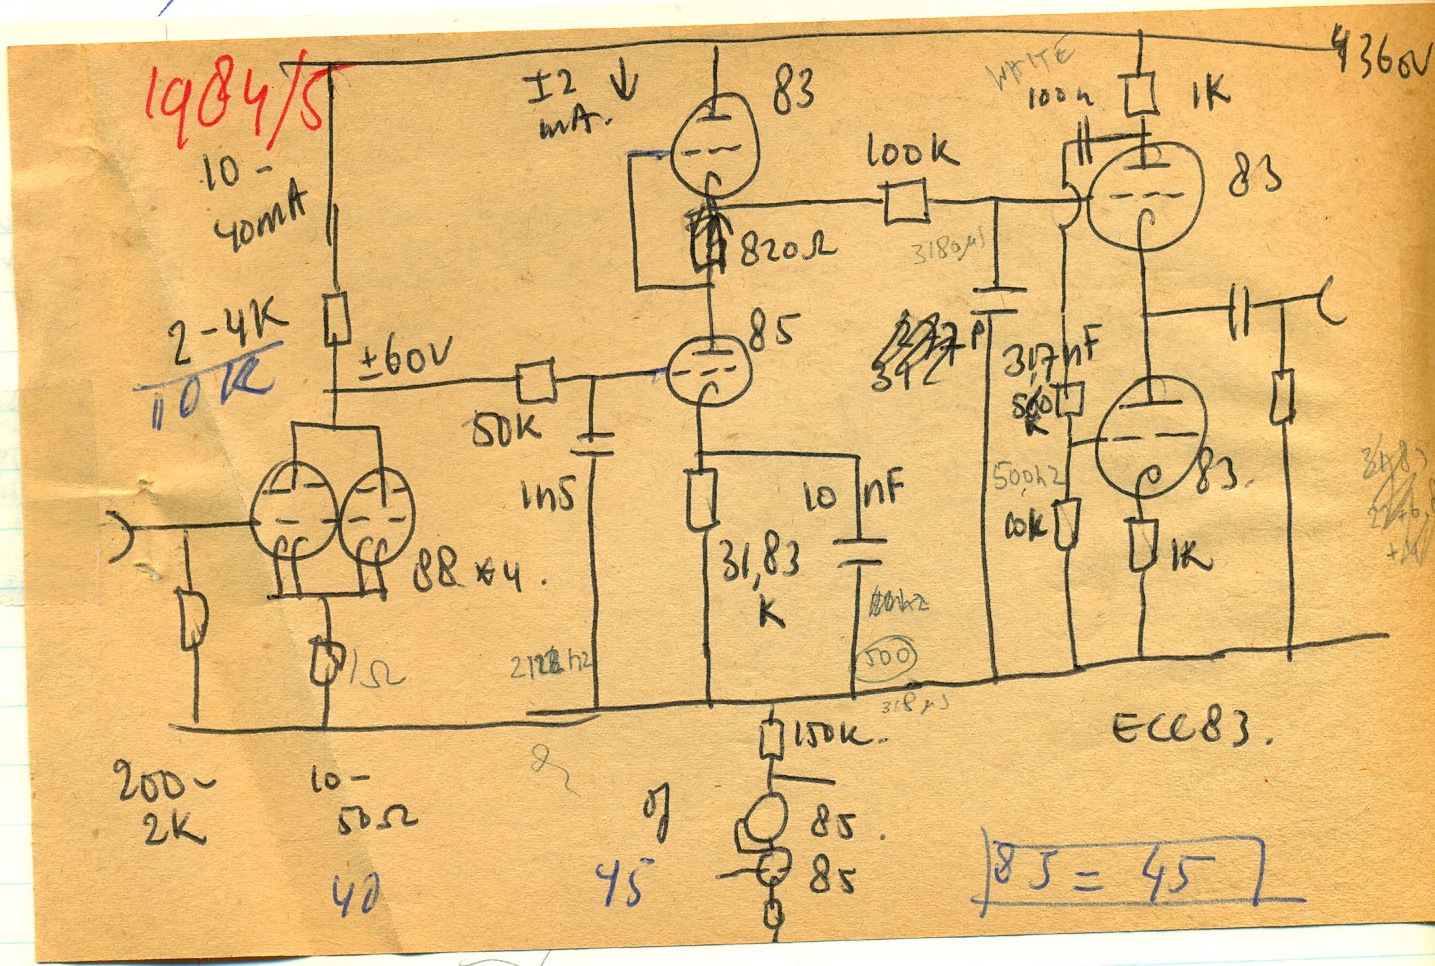 1984/5
10-
40mA
2-4K
10K
±60V
50K
1n5
88 * 4.
1Ω
200-
2K
10-
50Ω
40
I2
mA.
83
820Ω
85
31,83
K
10 nF
500
318µS
100K
3180µS
WHITE
100n
1K
83
500hz
83.
1K
+360V
ECC83.
150K.
of
45
85.
85
85 = 45